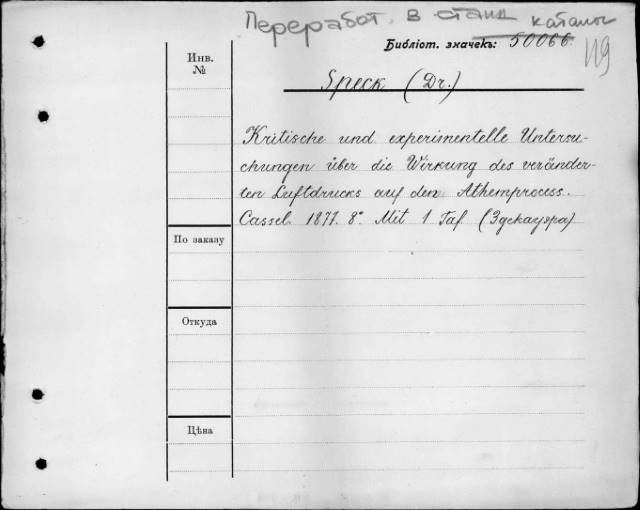 Переработ. в станд каталог
Библіот. значекъ: 50066.
119
Инв.
№
Speck (Dr.)
Kritische und experimentelle Untersu-
chungen über die Wirkung des veränder-
ten Luftdrucks auf den Athemprocess.
Cassel. 1877. 8° Mit 1 Taf (Здекауэра)
По заказу
Откуда
Цѣна